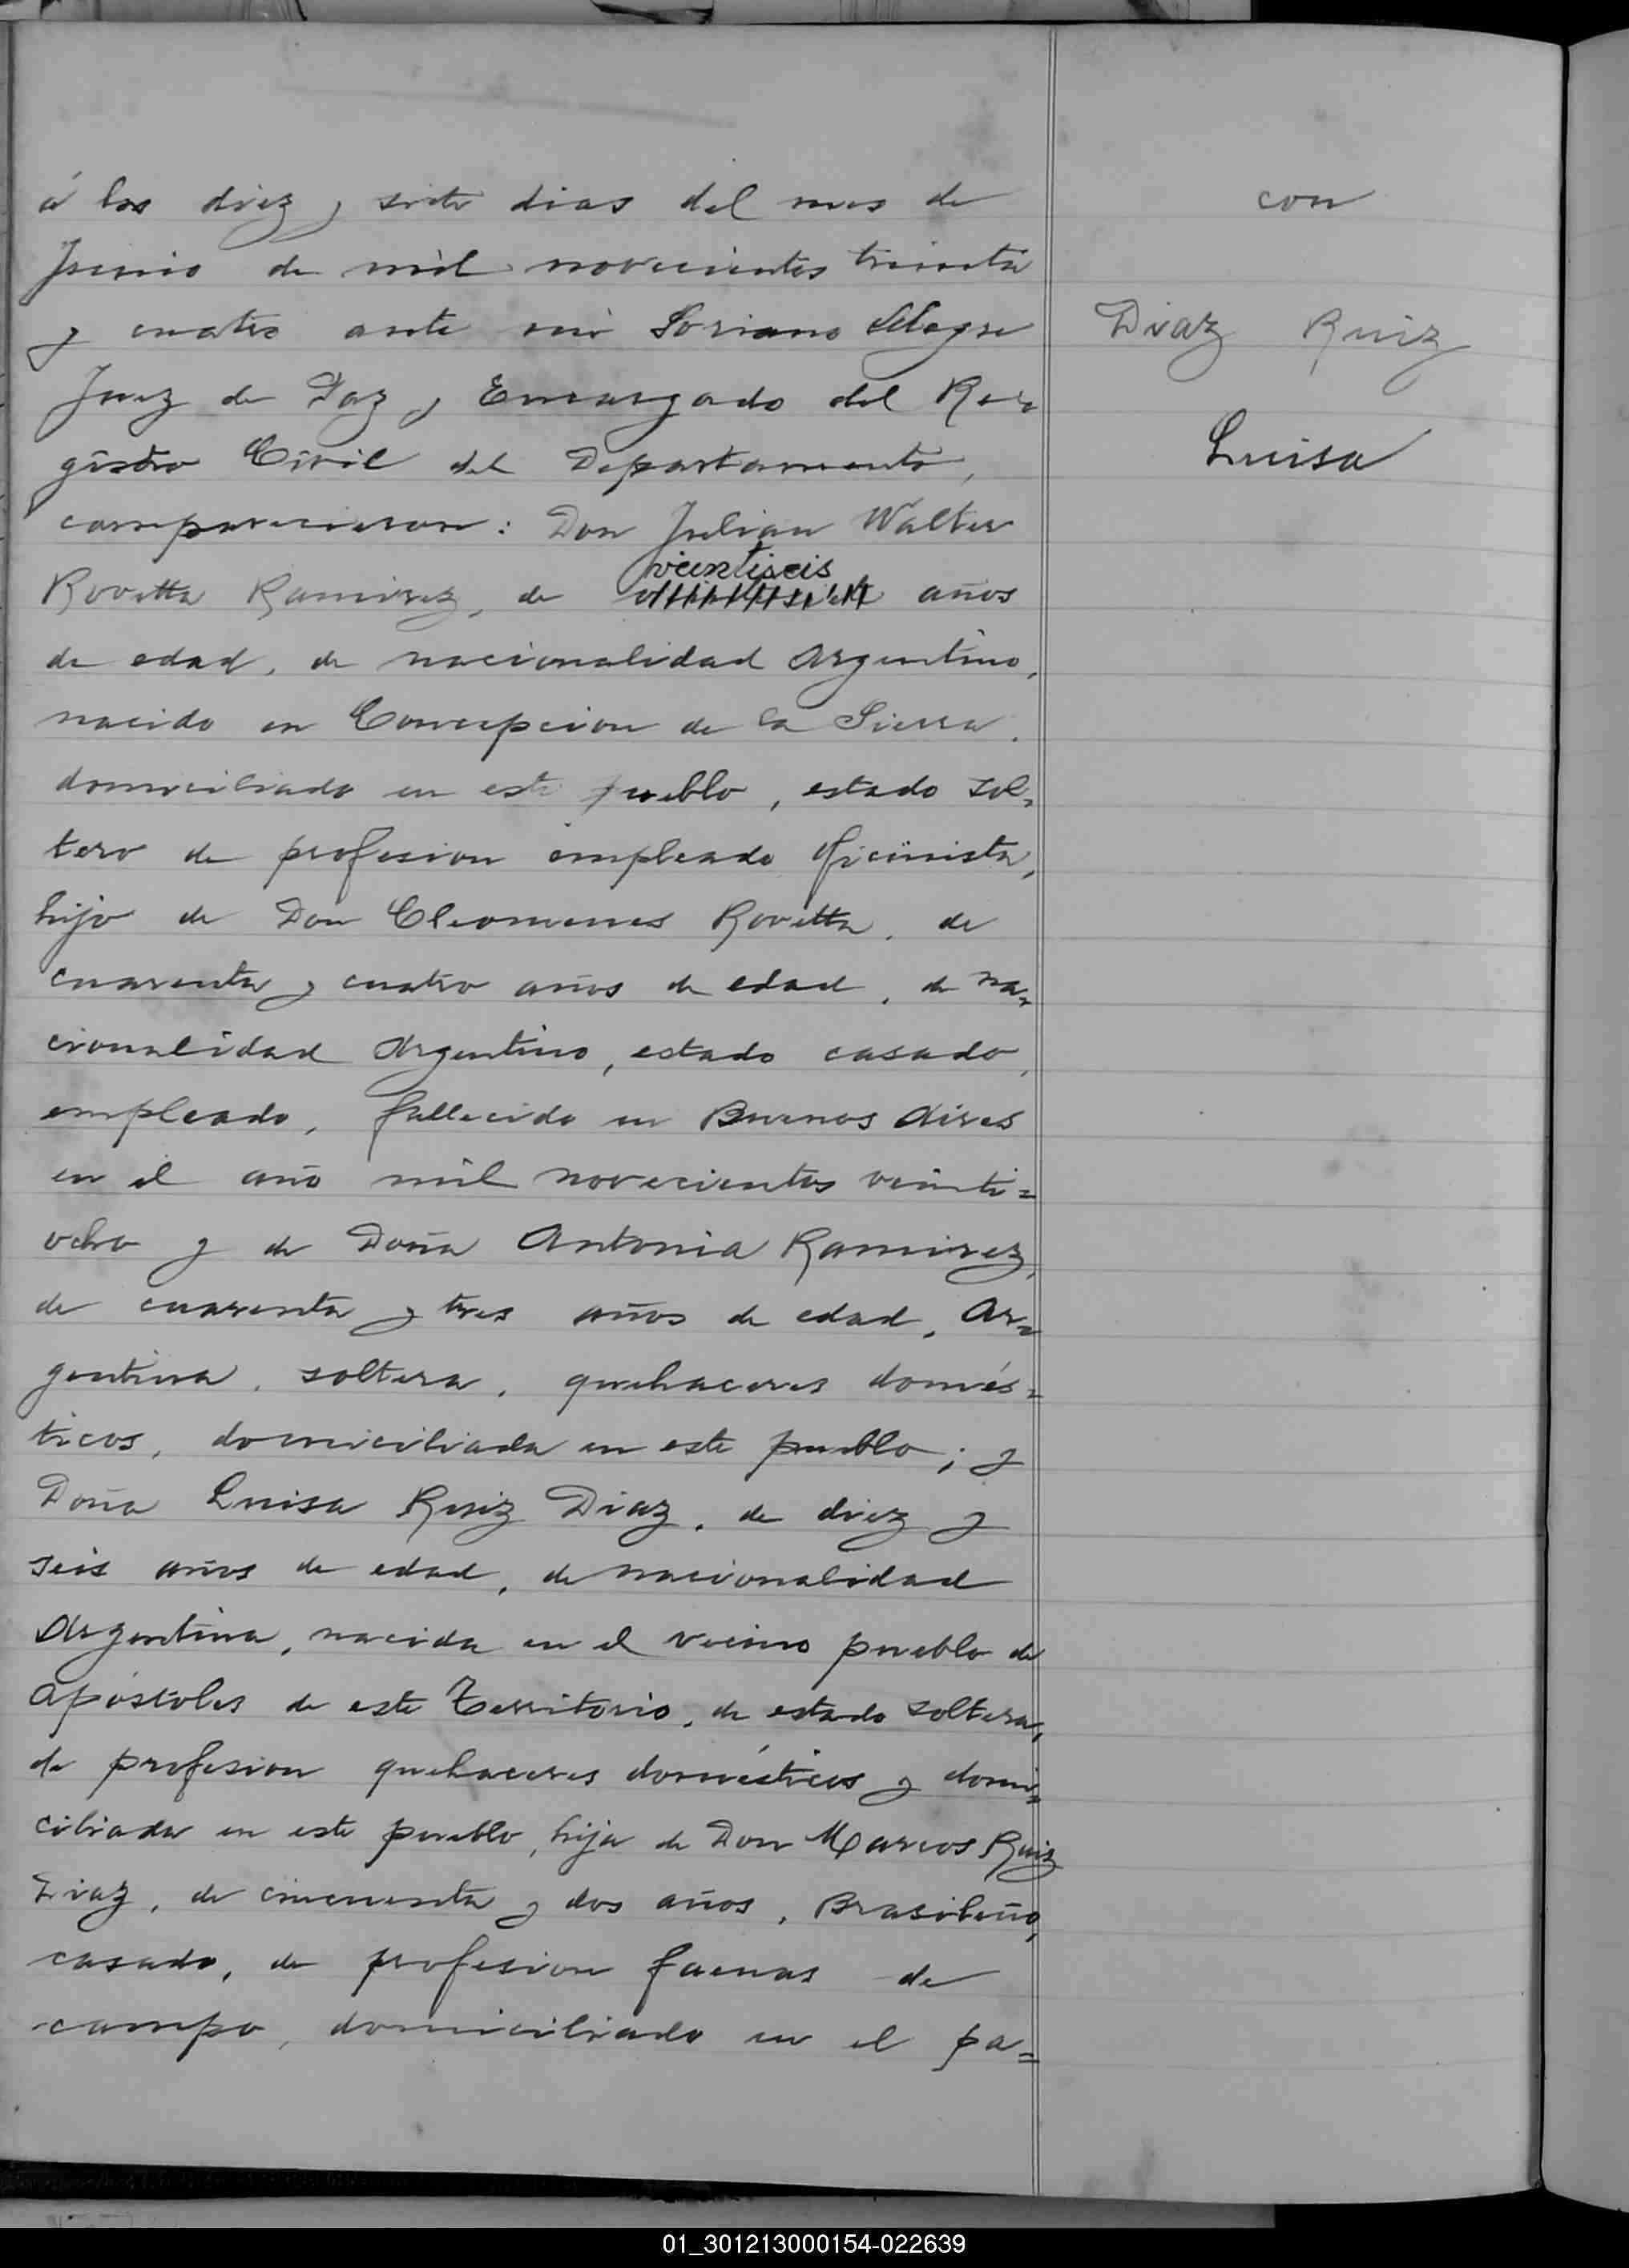 á los diez y siete dias del mes de
Junio de mil novecientos treinta
y cuatro ante mi Soriano Alegre
Juez de Paz y Encargado del Re=
gistro Civil del Departamento,
comparecieron: Don Julian Walter
veintiseis
Rovetta Ramirez, de años
de edad, de nacionalidad Argentino,
nacido en Concepcion de la Sierra,
domiciliado en este pueblo, estado sol=
tero de profesion empleado oficinista,
hijo de Don Cleomenes Rovetta, de
cuarenta y cuatro años de edad, de na=
cionalidad Argentino, estado casado,
empleado, fallecido en Buenos Aires
en el año mil novecientos veinti=
ocho y de Doña Antonia Ramirez,
de cuarenta y tres años de edad, Ar=
gentina, soltera, quehaceres domés=
ticos, domiciliada en este pueblo; y
Doña Luisa Ruiz Diaz, de diez y
seis años de edad, de nacionalidad
Argentina, nacida en el vecino pueblo de
Apóstoles de este Territorio, de estado soltera,
de profesion quehaceres domésticos y domi=
ciliada en este pueblo, hija de Don Marcos Ruiz
Diaz, de cincuenta y dos años, Brasileño,
casado, de profesion faenas de
campo, domiciliado en el pa=
con
Diaz Ruiz
Luisa
01_301213000154-022639